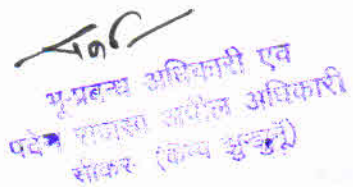 भू-प्रबन्ध अधिकारी एवं
पदेन राजस्व अपील अधिकारी
सीकर (कैम्प झुन्झुनूँ)